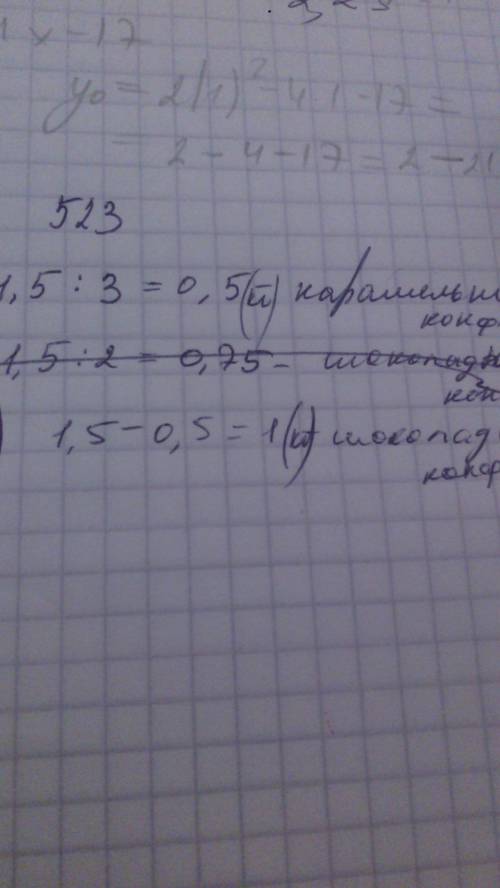 x - 17
y₀ = 2(1)² - 4·1 - 17 =
= 2 - 4 - 17 = 2 - 21
523
1,5 : 3 = 0,5(кг) карамельн
конф
1,5 : 2 = 0,75 - шоколадн
кон
) 1,5 - 0,5 = 1(кг) шоколад
конф